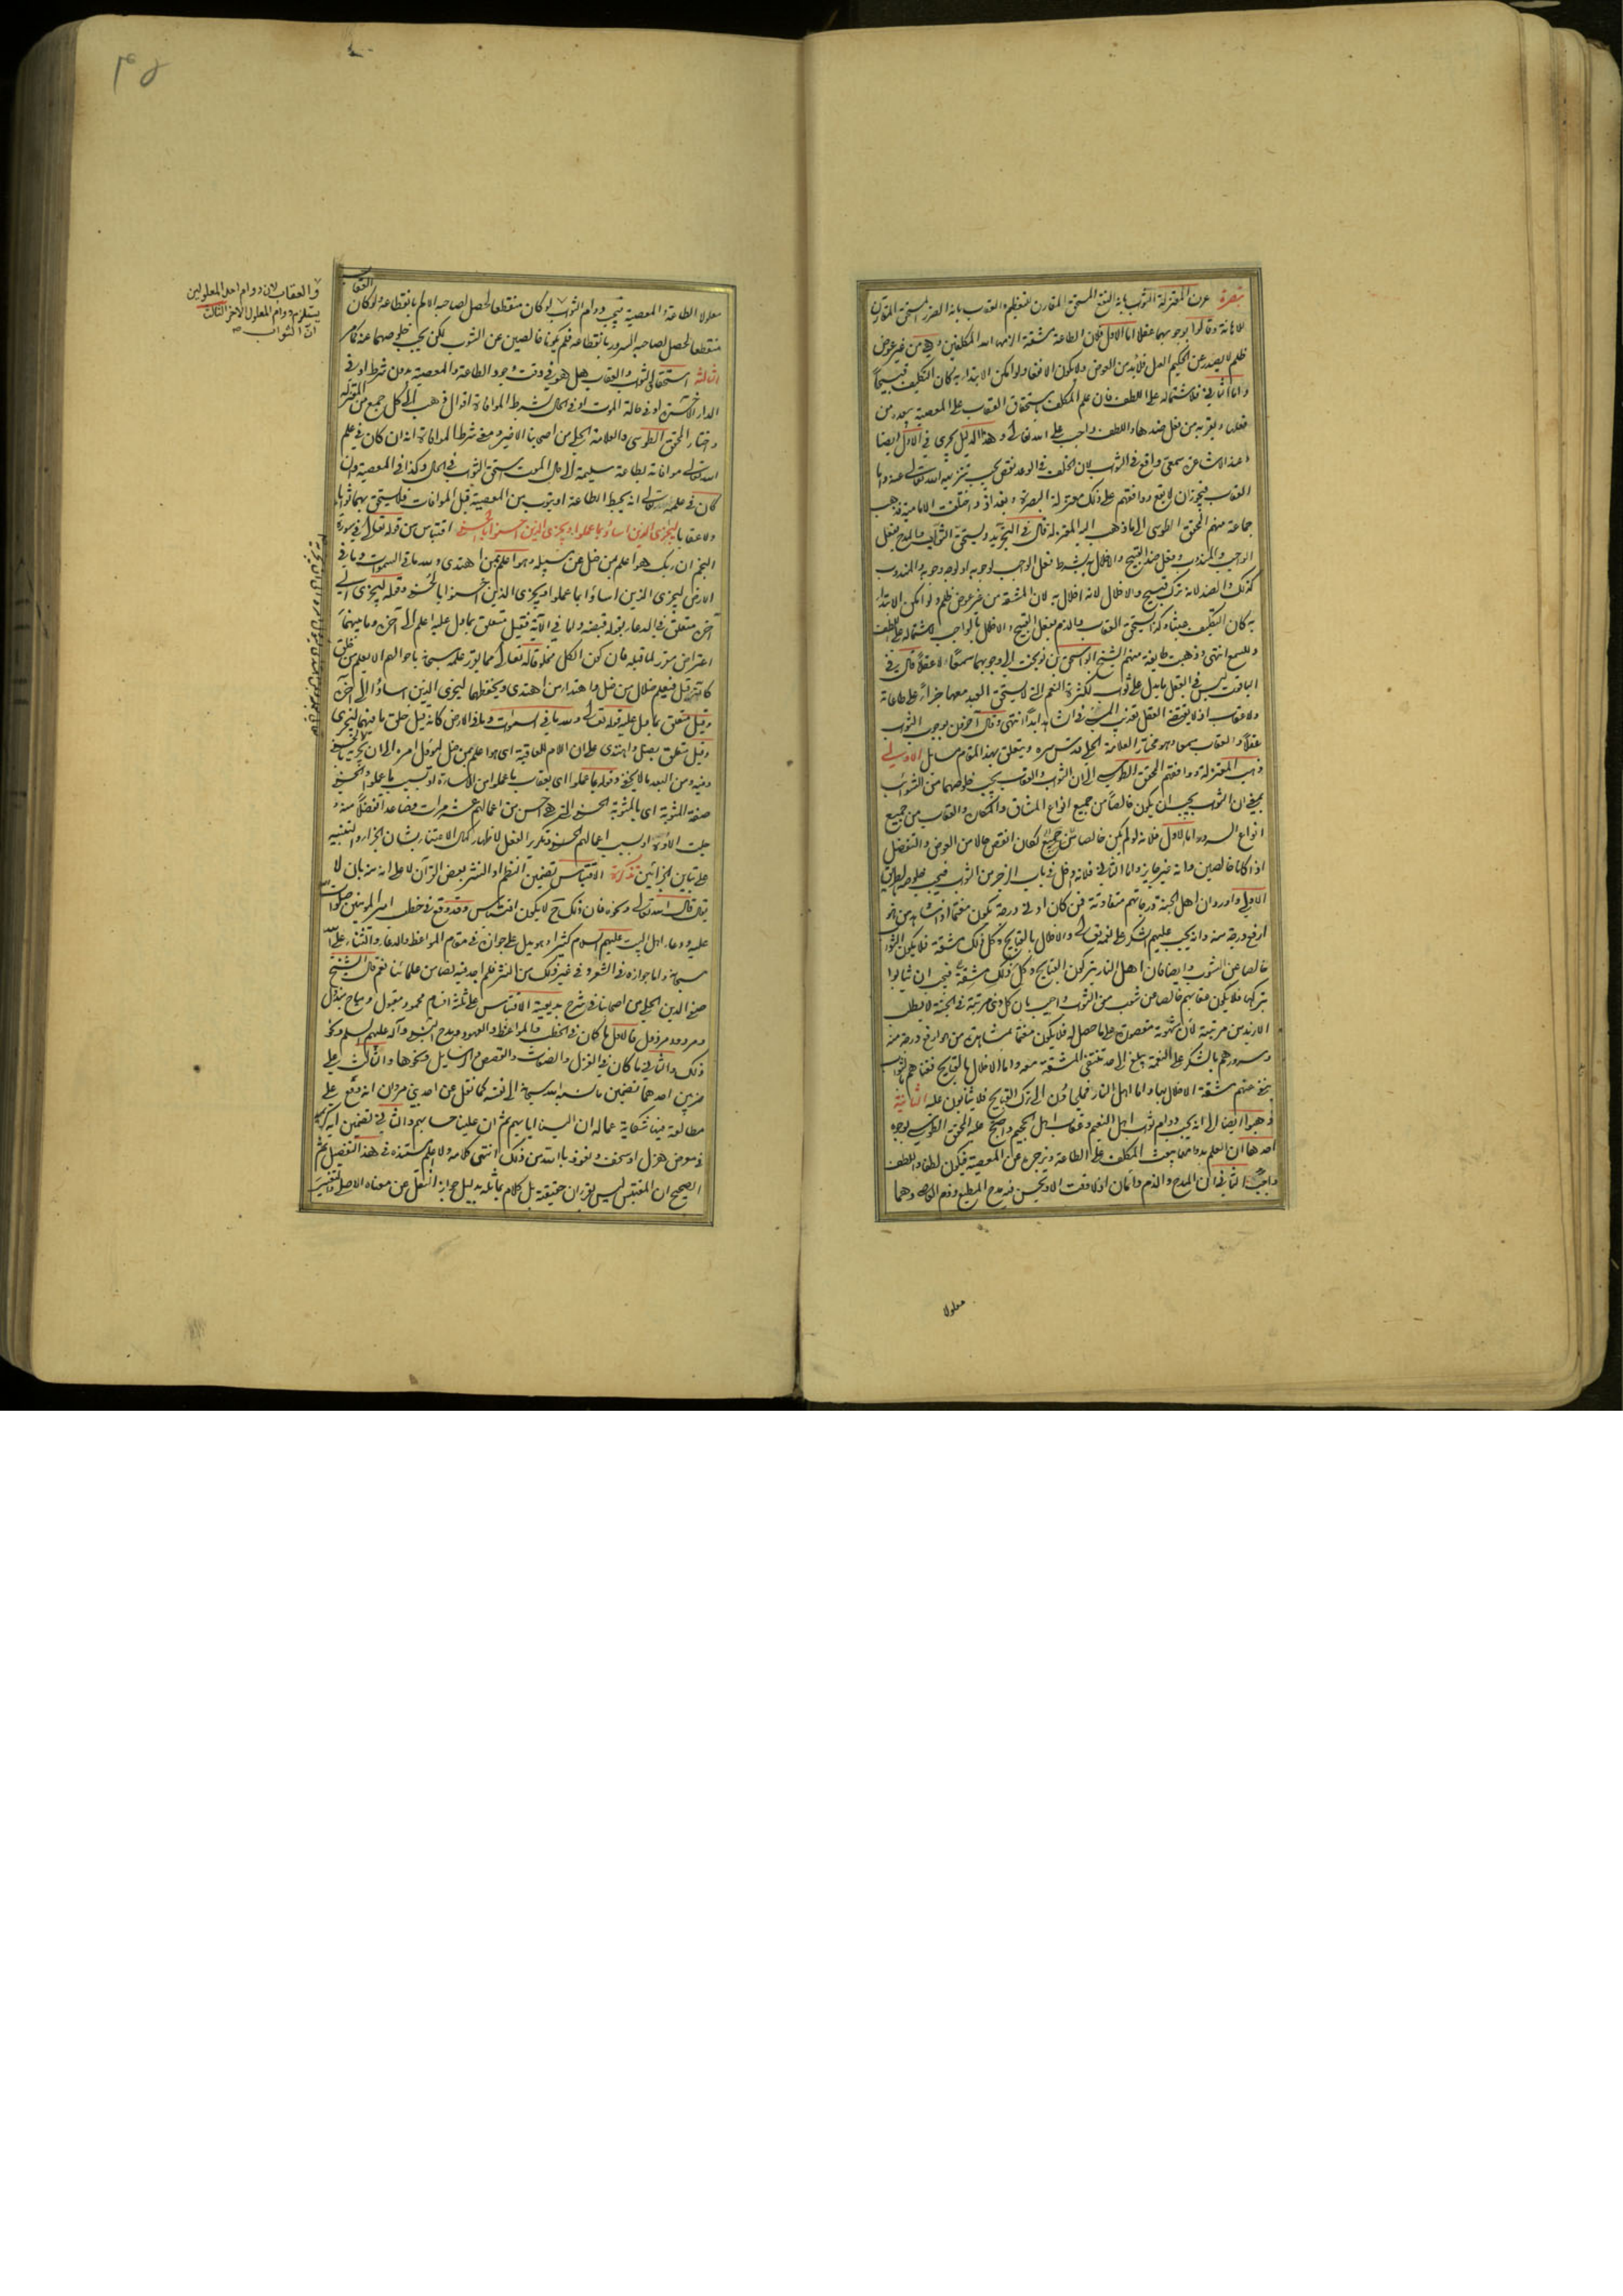 تبصرة عرف المعتزلة الثواب بانه النفع المستحق المقارن للتعظيم والعقاب بانه الضرر المستحق المقارن
للاهانة وقالوا بوجوبهما عقلا اما الاول فلان الطاعة مشقة الزمها الله المكلفين وهي من غير عوض
ظلم لا يصدر عن الحكيم العدل فلابد من العوض ولا يكون الا نفعا ولو امكن الابتداء به كان التكليف قبيحا
واما الثاني فلاشتماله على اللطف فان علم المكلف باستحقاق العقاب على المعصية يبعده من
فعلها ويقربه من فعل ضدها واللطف واجب على الله تعالى وهذا الدليل يجري في الاول ايضا
وعند الاشاعرة سمعي واقع في الثواب لان الخلف في الوعد نقص يجب تنزيه الله تعالى عنه واما
العقاب فيجوز ان لا يقع ووافقهم على ذلك معتزلة البصرة وبغداد واختلفت الامامية فذهب
جماعة منهم المحقق الطوسي الى ما ذهب اليه المعتزلة قال في التجريد ويستحق الثواب والمدح بفعل
الواجب والمندوب وفعل ضد القبيح والاخلال به بشرط فعل الواجب لوجوبه او لوجه وجوبه والمندوب
كذلك والضد لانه ترك قبيح والاخلال لانه اخلال به لان المشقة من غير عوض ظلم ولو امكن الابتداء
به كان التكليف عبثا وكذا يستحق العقاب والذم بفعل القبيح والاخلال بالواجب لاشتماله على اللطف
وللسمع انتهى وذهبت طايفة منهم الشيخ ابو اسحق بن نوبخت الى وجوبهما سمعا لا عقلا قال في
الياقوت ليس في العقل ما يدل على ثواب لكثرة النعم التي لا يستحق العبد معها جزاء على طاعاته
ولا عقاب اذ لا يقتضي العقل تعذيب المسئ في الشاهد ابدا انتهى وقال آخرون بوجوب الثواب
عقلا والعقاب سمعا وهو مختار العلامة الحلي قدس سره ويتعلق بهذا المقام مسايل الاولى
ذهب المعتزلة ووافقهم المحقق الطوسي الى ان الثواب والعقاب يجب خلوصهما من الشوائب
بمعنى ان الثواب يجب ان يكون خالصا من جميع انواع المشاق والمكاره والعقاب من جميع
انواع السرور اما الاول فلانه لو لم يكن خالصا لكان انقص حالا من العوض والتفضل
اذا كانا خالصين وانه غير جايز واما الثاني فلانه ادخل في باب الزجر من الثواب فيجب خلوصه بطريق
الاولى واورد ان اهل الجنة درجاتهم متفاوتة فمن كان ادنى درجة يكون مغتما اذا شاهد من هو
ارفع درجة منه وانه يجب عليهم الشكر على نعمه تعالى والاخلال بالقبايح وكل ذلك مشقة فلا يكون الثواب
خالصا عن الشوب وايضا فان اهل النار يتركون القبايح وكل ذلك مشقة فيجب ان يثابوا
بتركها فلا يكون عقابهم خالصا من شوب من الثواب واجيب بان كل ذي مرتبة في الجنة لا يطلب
الازيد من مرتبته لان شهوته مقصورة على ما حصل له فلا يكون مغتما بمشاهدة من هو ارفع درجة منه
وسرورهم بالشكر على النعمة يبلغ الى حد تنتفي المشقة معه واما الاخلال بالقبايح فغناهم بالثواب
ينفي عنهم مشقة الاخلال بها واما اهل النار فملجاؤون الى ترك القبايح فلا يثابون عليه الثانية
ذهبوا ايضا الى انه يجب دوام ثواب اهل النعيم وعقاب اهل الجحيم واحتج عليه المحقق الطوسي بوجوه
احدها ان العلم بدوامهما يبعث المكلف على الطاعة ويزجره عن المعصية فيكون لطفا واللطف
واجب الثاني ان المدح والذم دائمان اذ لا وقت الا ويحسن فيه مدح المطيع وذم العاصي وهما
معلولا
معلولا الطاعة والمعصية فيجب دوام الثواب لو كان منقطعا لحصل لصاحبه الالم بانقطاعه ولو كان
العقاب
منقطعا لحصل لصاحبه السرور بانقطاعه فلم يكونا خالصين عن الشوب لكن يجب خلوصهما عنه كما مر
الثالثة استحقاق الثواب والعقاب هل هو في وقت وجود الطاعة والمعصية بدون شرط او في
الدار الآخرة او في حالة الموت او في الحال بشرط الموافاة اقوال ذهب الى كل جمع من المعتزلة
واختار المحقق الطوسي والعلامة الحلي من اصحابنا الاخير ومعنى شرط الموافاة انه ان كان في علم
الله تعالى موافاته بطاعة سليمة الى حال الموت استحق الثواب في الحال وكذا في المعصية وان
كان في علمه تعالى انه يحبط الطاعة او يتوب من المعصية قبل الموافات فلا يستحق بهما ثوابا
ولا عقابا ليجزي الذين اساؤا بما عملوا ويجزي الذين احسنوا بالحسنى اقتباس من قوله تعالى في سورة
النجم ان ربك هو اعلم بمن ضل عن سبيله وهو اعلم بمن اهتدى ولله ما في السموات وما في
الارض ليجزي الذين اساؤا بما عملوا ويجزي الذين احسنوا بالحسنى وقوله ليجزي الى
آخره متعلق في الدعاء بقوله قبضه واما في الآية فقيل متعلق بما دل عليه اعلم الى آخره وما بينهما
اعتراض مقرر لما قبله فان كون الكل مخلوقا له تعالى مما يقرر علمه سبحانه باحوالهم الا يعلم من خلق
كانه قيل فيعلم ضلال من ضل واهتداء من اهتدى ويحفظهما ليجزي الذين اساؤا الى آخره
وقيل متعلق بما دل عليه قوله تعالى ولله ما في السموات وما في الارض كانه قيل خلق ما فيهما ليجزي
وقيل متعلق بضل واهتدى على ان اللام للعاقبة اي هو اعلم بمن ضل ليؤول امره الى ان يجزيه بالحسنى
وفيه من البعد ما لا يخفى وقوله بما عملوا اي بعقاب ما عملوا من الاساءة او بسبب ما عملوا والحسنى
صفة المثوبة اي بالمثوبة الحسنى التي هي احسن من اعمالهم عشر مرات فصاعدا تفضلا منه
جلت آلاؤه او بسبب اعمالهم الحسنى وتكرير الفعل لاظهار كمال الاعتناء بشان الجزاء والتنبيه
على تباين الجزائين تذكرة الاقتباس تضمين النظم او النثر بعض القرآن لا على انه منه بان لا
يقال قال الله تعالى ونحوه فان ذلك ح لا يكون اقتباس وقد وقع في خطب امير المؤمنين صلوات الله
عليه ودعاء اهل البيت عليهم السلام كثيرا وهو يدل على جوازه في مقام المواعظ والدعاء والثناء على الله
سبحانه واما جوازه في الشعر وفي غير ذلك من النثر فلم اجد فيه نصا من علمائنا نعم قال الشيخ
صفي الدين الحلي من اصحابنا في شرح بديعيته الاقتباس على ثلثة اقسام محمود مقبول ومباح مبذول
ومردود مرذول فالاول ما كان في الخطب والمواعظ والعهود ومدح النبي وآله عليهم السلم ونحو
ذلك والثاني ما كان في الغزل والصفات والقصص والرسايل ونحوها والثالث على
ضربين احدهما تضمين ما نسبه الله سبحانه الى نفسه كما نقل عن احد بني مروان انه وقع على
مطالعة فيها شكاية عماله ان الينا ايابهم ثم ان علينا حسابهم والثاني تضمين آية كريمة
في معرض هزل او سخف ونعوذ بالله من ذلك انتهى كلامه ولا اعلم مستنده في هذا التفصيل ثم
الصحيح ان المقتبس ليس بقرآن حقيقة بل كلام يماثله بدليل جواز النقل عن معناه الاصلي والتغيير
والعقاب لان دوام احد المعلولين
يستلزم دوام المعلول الاخر الثالث
ان الثواب صح